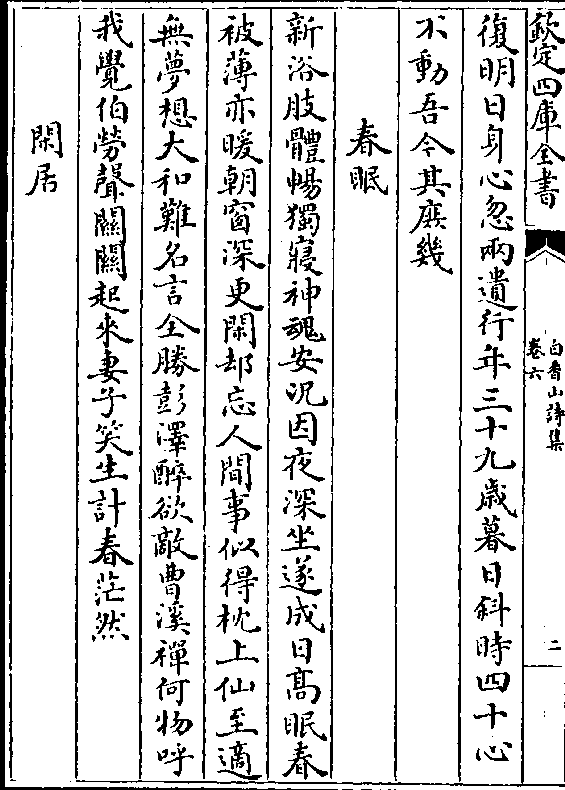 欽定四庫全書
白香山詩集
卷六
二
復明日身心忽兩遺行年三十九歲暮日斜時四十心
不動吾今其庶幾
春眠
新浴肢體暢獨寢神魂安況因夜深坐遂成日高眠春
被薄亦暖朝窗深更閑却忘人間事似得枕上仙至適
無夢想大和難名言全勝彭澤醉欲敵曹溪禪何物呼
我覺伯勞聲關關起來妻子笑生計春茫然
閑居